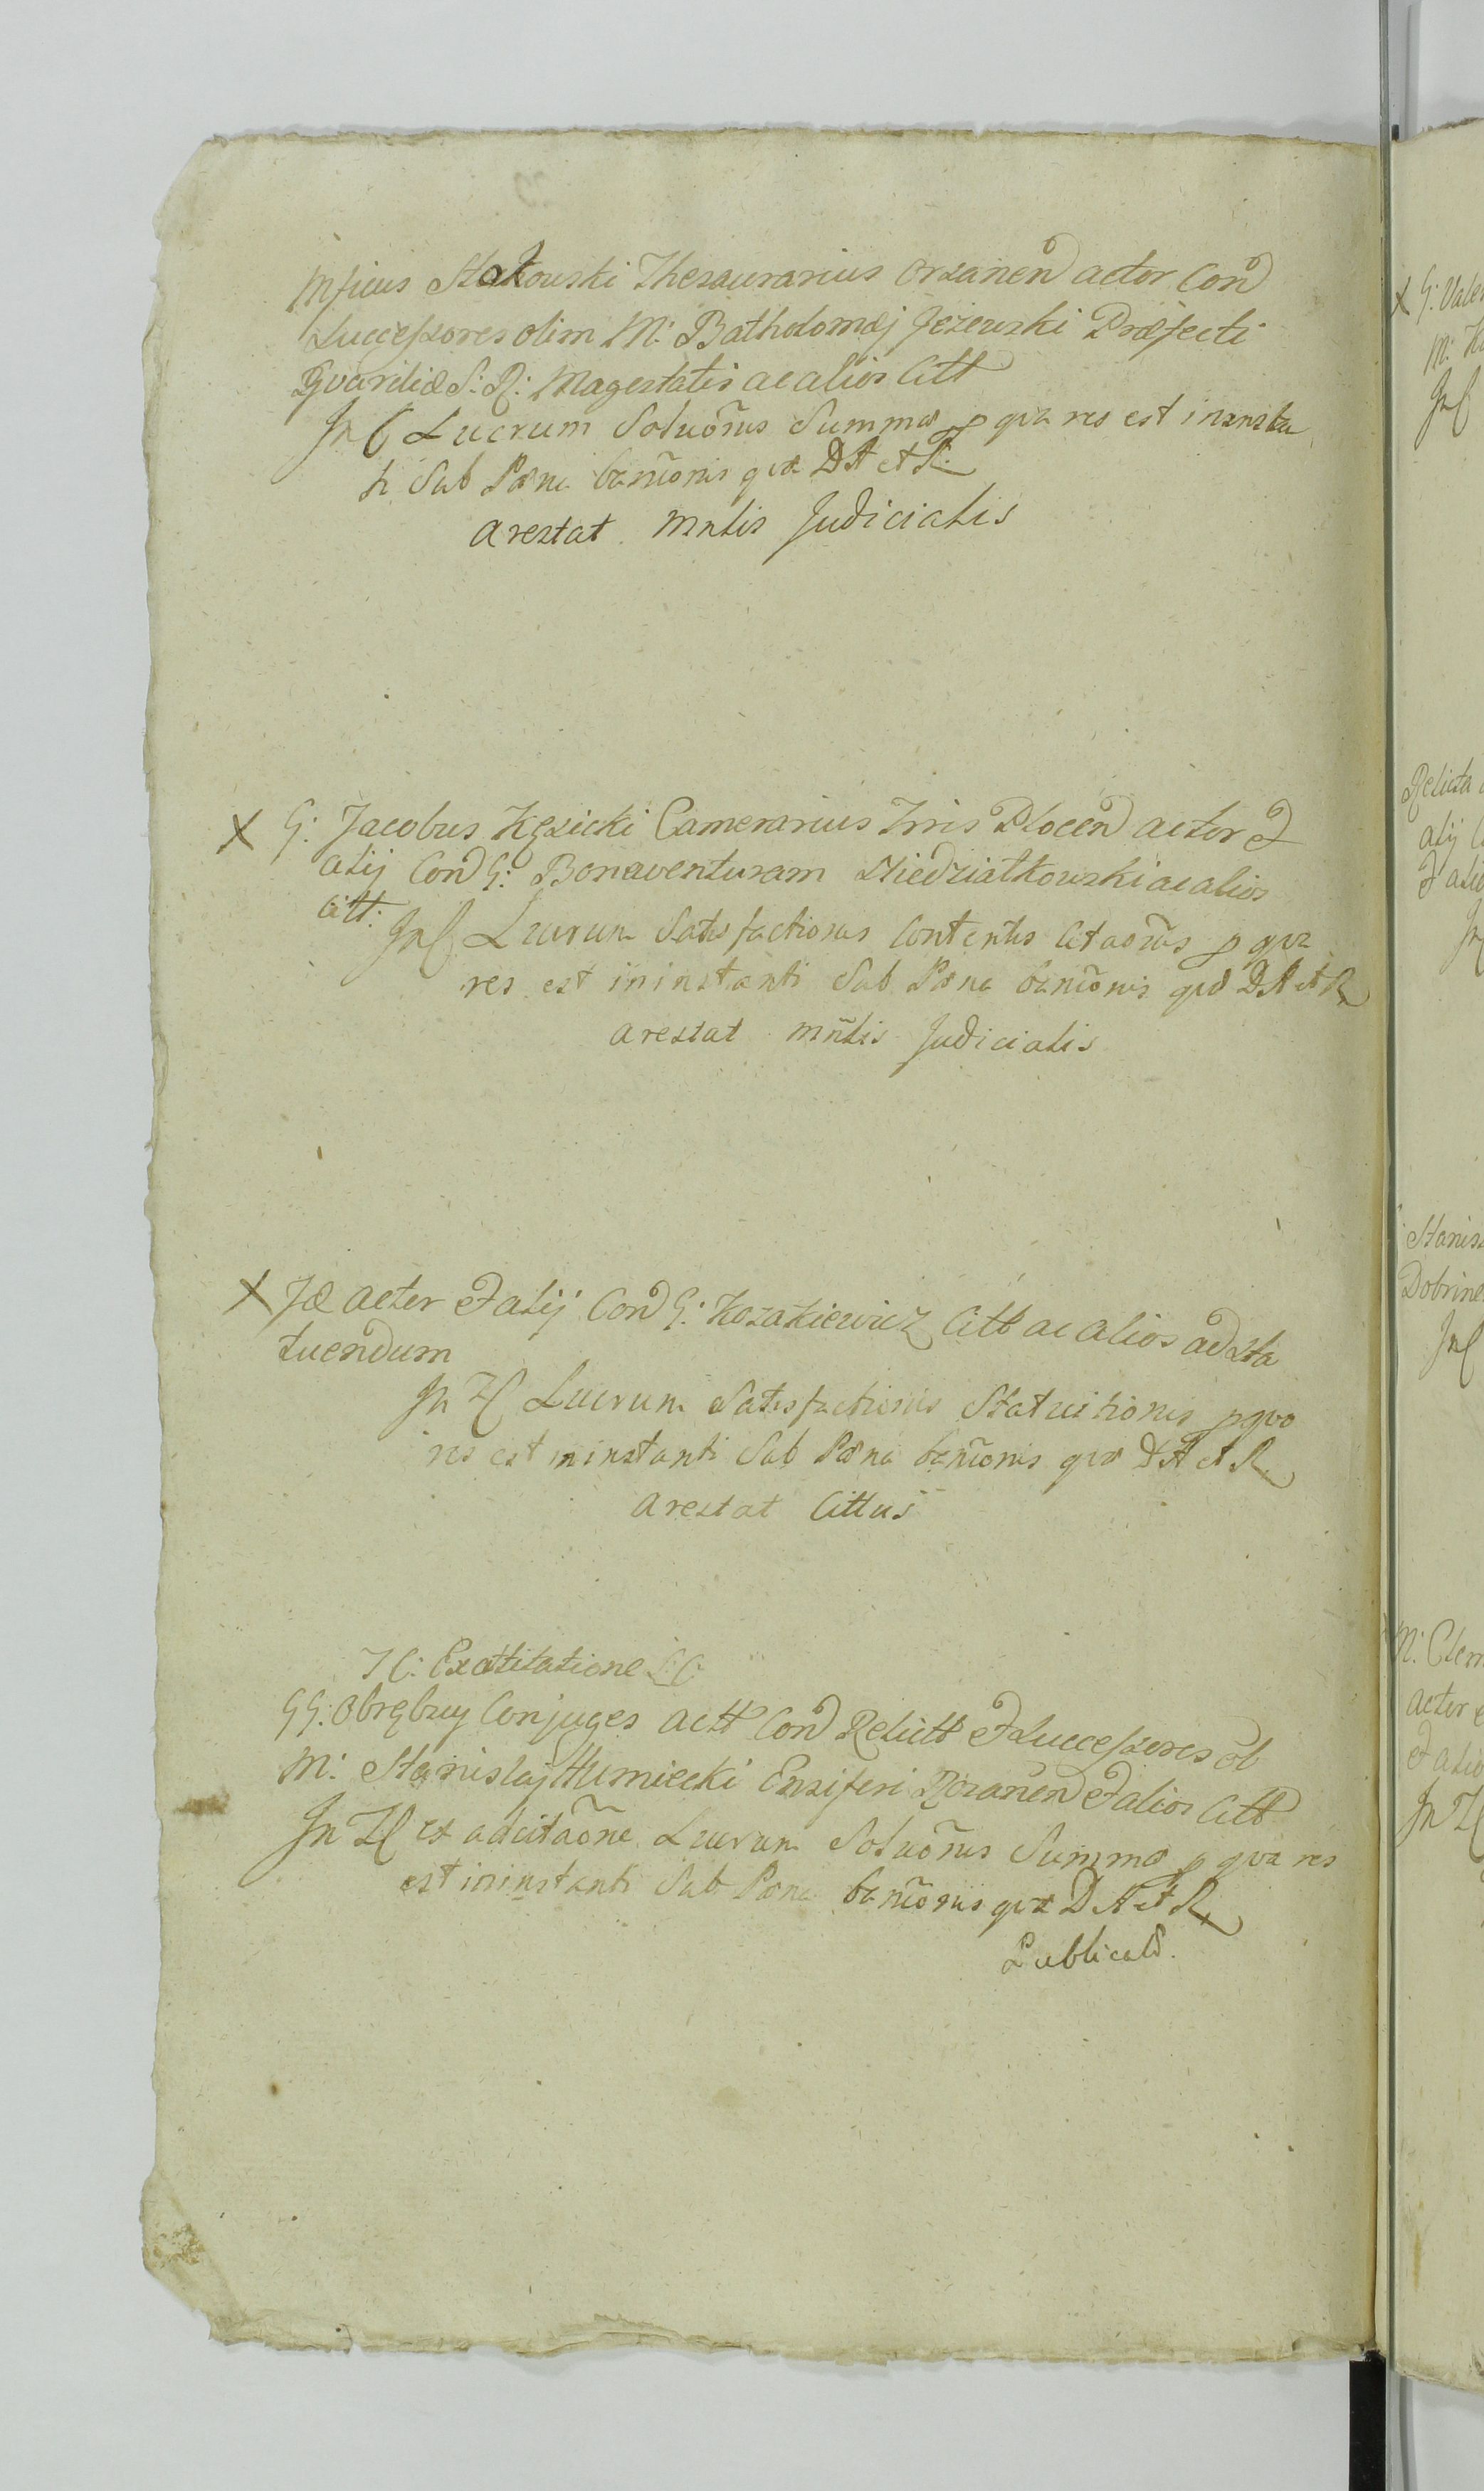 Mficus Stakowski Thesaurarius Orsanen actor Con
Successores olim M: Batholomæj Jeżewski Præfecti
Gvardiæ S: R: Magestatis ac alios Citt
In C Lucrum Soluõnis Summæ p qva res est in insta
ti Sub Pæna banõnis qvæ DA et R
arestat mntis Judicialis
X G: Jacobus Kęsicki Camerarius Trris Plocen actor et
alij Con G: Bonaventuram Niedziałkowski ac alios
Citt:
In C Lucrum Satisfactionis Contentis Citaõnis p qva
res est in instanti Sub Pæna banõnis qvæ DA et R
arestat mñtis Judicialis
X Id actor et alij Con G: Kozakiewicz Citt ac alios ad Sta
tuendum
In T C Lucrum Satisfactionis Statuitionis p qvo
res est in instanti Sub Pæna banõnis qvæ DA et R
arestat Cittus
T C: Ex
GG: Obrębscy Conjuges actt Con Relictt et Successores ol
M: Stanislaj Humiecki Ensiferi Rozanen et alios Citt
In T C ex adcitaõne Lucrum Soluõnis Summæ p qva res
est in instanti Sub Pæna banõnis qvæ DA et R
Publicat.
X G: Vale
M:
In C
Relicta
alij C
et alio
Stanis
Dobrine
In C
M: Clem
actor e
et alio
In T C